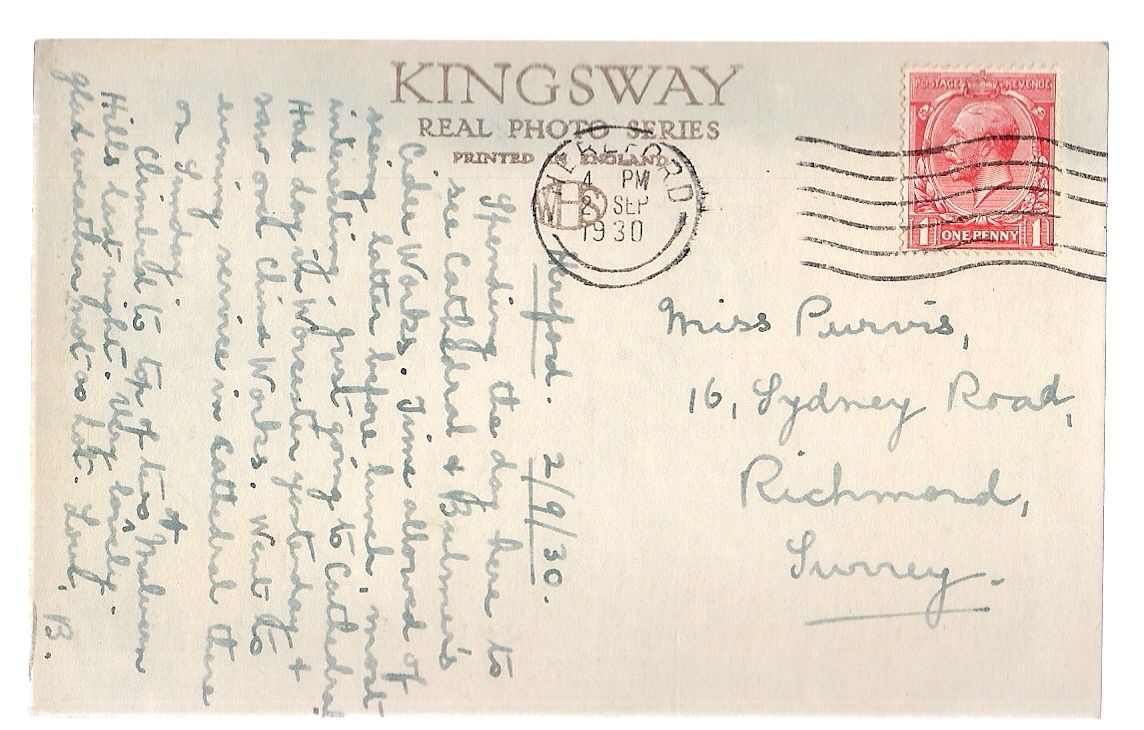 KINGSWAY
REAL PHOTO SERIES
PRINTED IN ENGLAND
WHS
HEREFORD
4 PM
2 SEP
1930
POSTAGE REVENUE
1 ONE PENNY 1
Miss Purvis,
16, Sydney Road,
Richmond,
Surrey.
Hereford. 2/9/30.
Spending the day here to
see Cathedral & Bulmer's
Cider Works. Time allowed of
seeing latter before lunch, most
interesting, just going to Cathedral
Had day in Worcester yesterday &
saw over China Works. Went to
evening service in Cathedral there
on Sunday.
Climbed to top of two of Malvern
Hills last night. Very lovely.
glad weather not so hot. Love, B.